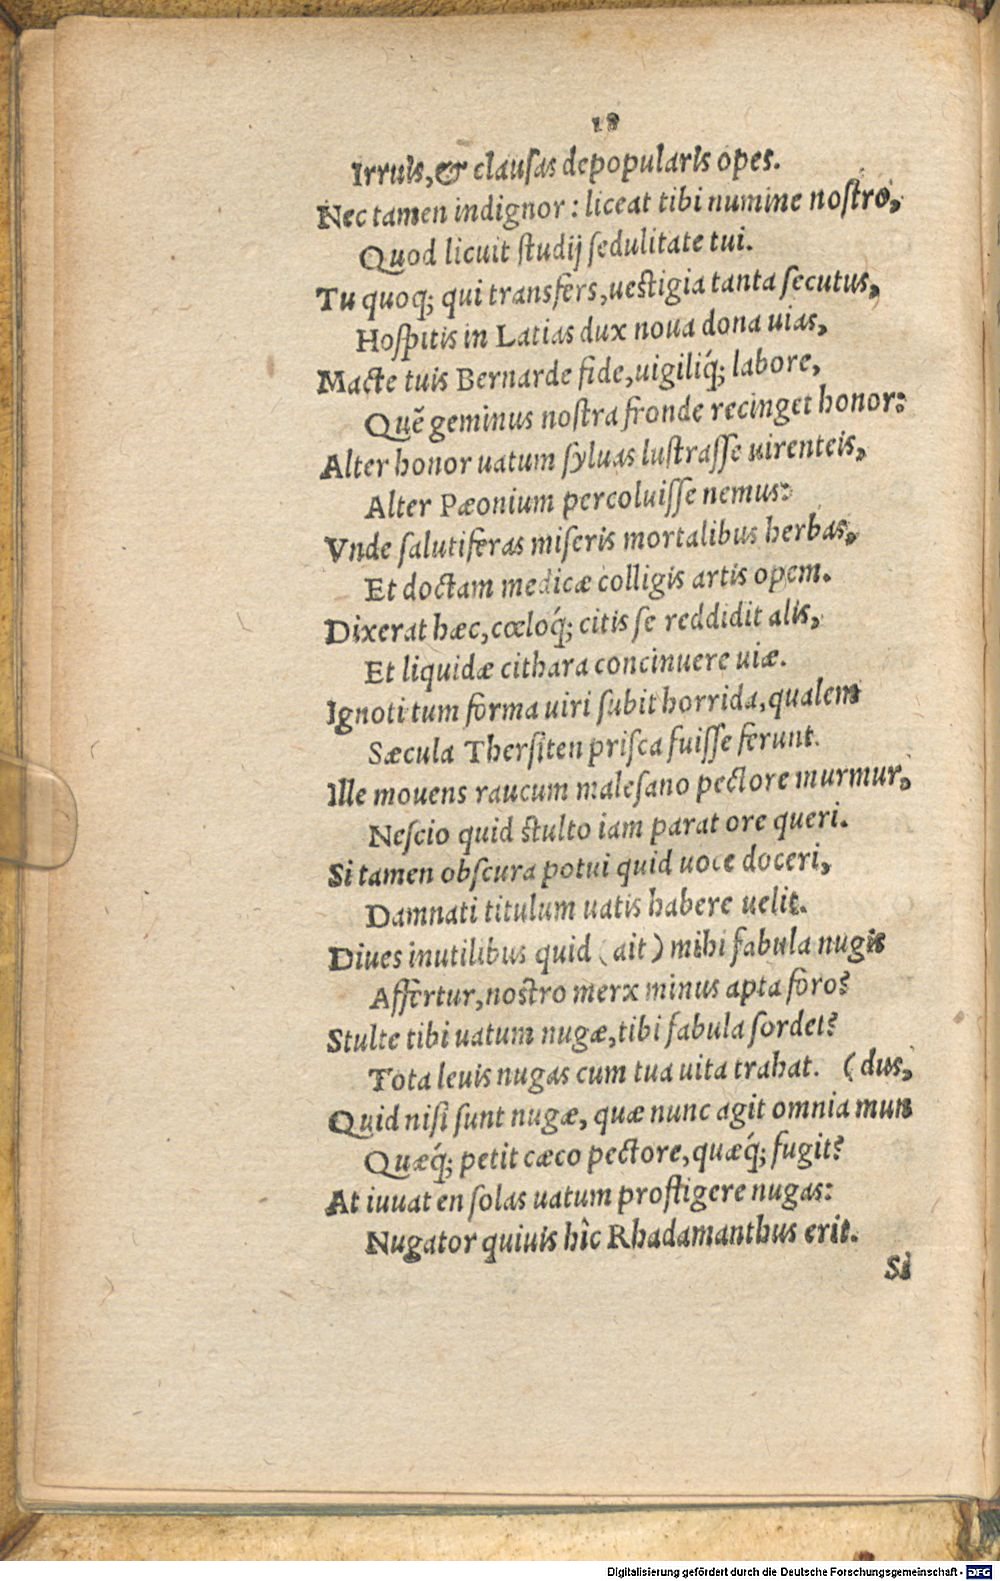 18
Irruis, & clausas depopularis opes.
Nec tamen indignor: liceat tibi numine nostro,
Quod licuit studij sedulitate tui.
Tu quoq; qui transfers, uestigia tanta secutus,
Hospitis in Latias dux noua dona uias,
Macte tuis Bernarde fide, uigiliq́; labore,
Quẽ geminus nostra fronde recinget honor:
Alter honor uatum syluas lustrasse uirenteis,
Alter Pæonium percoluisse nemus:
Vnde salutiferas miseris mortalibus herbas,
Et doctam medicæ colligis artis opem.
Dixerat hæc, cœloq́; citis se reddidit alis,
Et liquidæ cithara concinuere uiæ.
Ignoti tum forma uiri subit horrida, qualem
Sæcula Thersiten prisca fuisse ferunt.
Ille mouens raucum malesano pectore murmur,
Nescio quid stulto iam parat ore queri.
Si tamen obscura potui quid uoce doceri,
Damnati titulum uatis habere uelit.
Diues inutilibus quid (ait) mihi fabula nugis
Affertur, nostro merx minus apta foro?
Stulte tibi uatum nugæ, tibi fabula sordet?
Tota leuis nugas cum tua uita trahat. (dus,
Quid nisi sunt nugæ, quæ nunc agit omnia mun
Quæq́; petit cæco pectore, quæq́; fugit?
At iuuat en solas uatum profligere nugas:
Nugator quiuis hîc Rhadamanthus erit.
Si
Digitalisierung gefördert durch die Deutsche Forschungsgemeinschaft - DFG